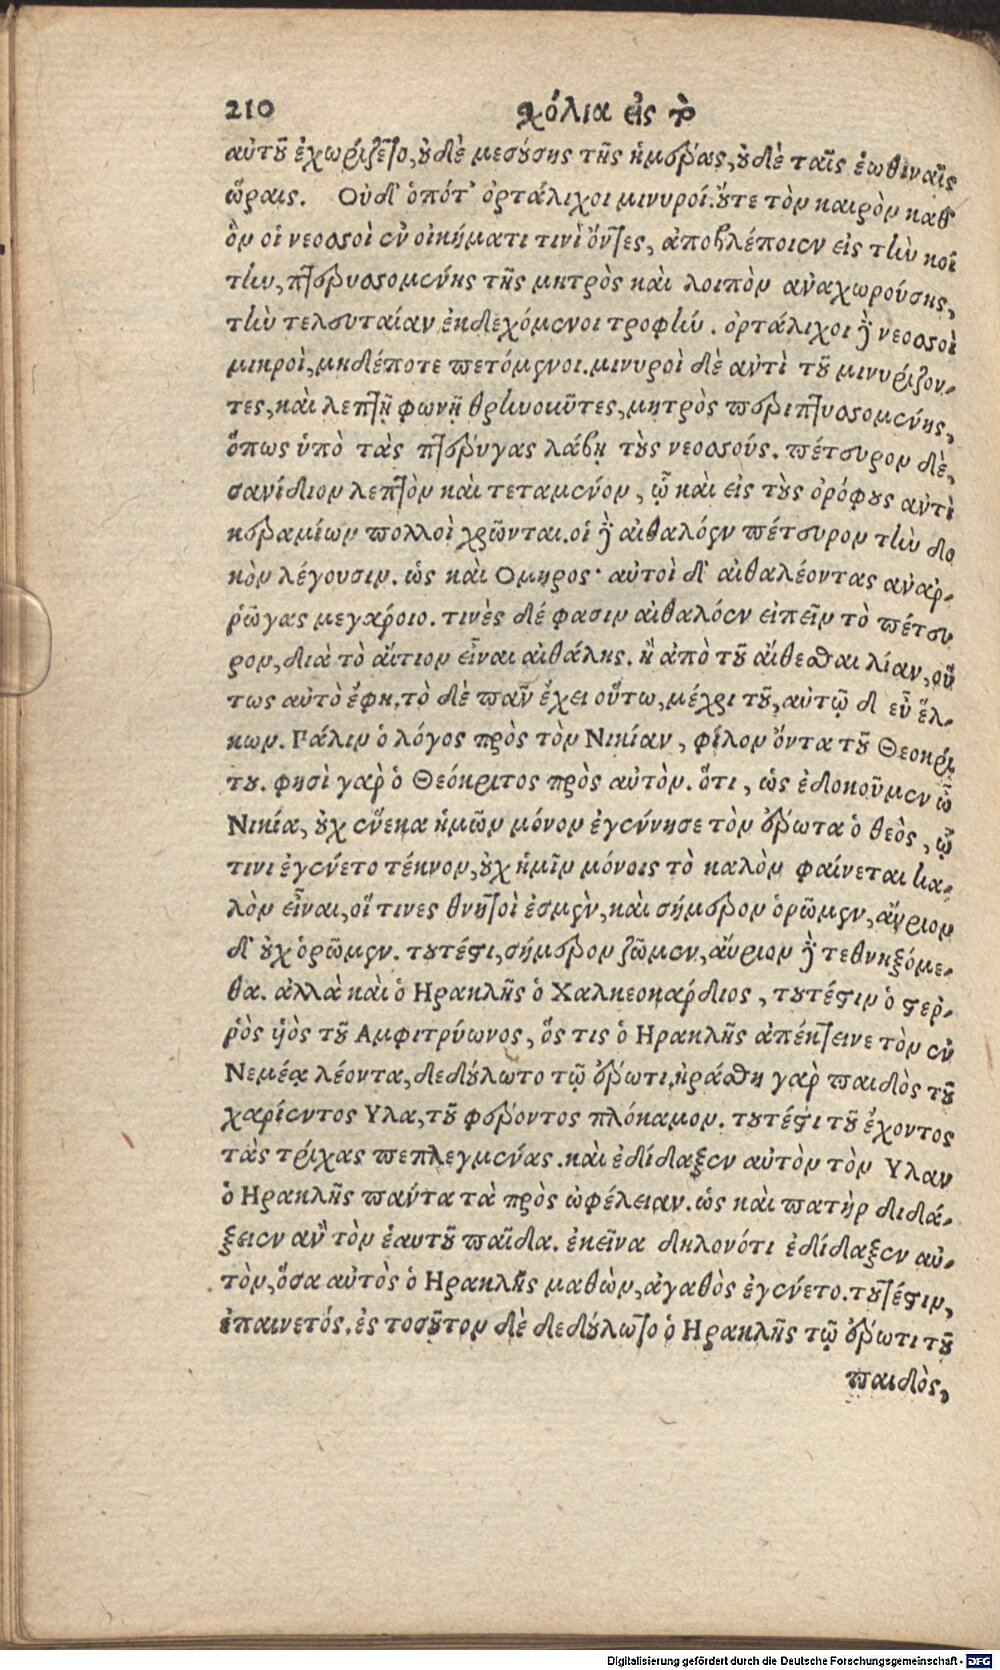 210 χόλια εἰς τὸ
αὐτοῦ ἐχωρίζετο, οὐδὲ μεσούσης τῆς ἡμέρας, οὐδὲ ταῖς ἑωθιναῖς
ὥραις. Οὐδ' ὁπότ' ὀρτάλιχοι μινυροί. οὔτε τὸν καιρὸν καθ'
ὃν οἱ νεοσσοὶ ἐν οἰκήματι τινὶ ὄντες, ἀποβλέποιεν εἰς τὴν κοί
την, πτερυσσομένης τῆς μητρὸς καὶ λοιπὸν ἀναχωρούσης,
τὴν τελευταίαν ἐκδεχόμενοι τροφήν. ὀρτάλιχοι γὰρ νεοσσοὶ
μικροὶ, μηδέποτε πετόμενοι. μινυροὶ δὲ ἀντὶ τοῦ μινυρίζον-
τες, καὶ λεπτῇ φωνῇ θρηνοῦντες, μητρὸς περιπτυσσομένης,
ὅπως ὑπὸ τὰς πτέρυγας λάβῃ τοὺς νεοσσούς. πέτευρον δὲ,
σανίδιον λεπτὸν καὶ τεταμένον, ᾧ καὶ εἰς τοὺς ὀρόφους ἀντὶ
κεραμίων πολλοὶ χρῶνται. οἱ γὰρ αἰθαλόεν πέτευρον τὴν δο
κὸν λέγουσιν. ὡς καὶ Ομηρος· αὐτοὶ δ' αἰθαλέοντας ἀναῤ-
ῥῶγας μεγάροιο. τινὲς δέ φασιν αἰθαλόεν εἰπεῖν τὸ πέτευ
ρον, διὰ τὸ αἴτιον εἶναι αἰθάλης. ἢ ἀπὸ τοῦ αἴθεσθαι λίαν, οὕ
τως αὐτὸ ἔφη. τὸ δὲ πᾶν ἔχει οὕτω, μέχρι τοῦ, αὐτῷ δ εὖ ἕλ-
κων. Γάλιν ὁ λόγος πρὸς τὸν Νικίαν, φίλον ὄντα τοῦ Θεοκρί
του. φησὶ γὰρ ὁ Θεόκριτος πρὸς αὐτὸν. ὅτι, ὡς ἐδοκοῦμεν ὦ
Νικία, οὐχ ἕνεκα ἡμῶν μόνον ἐγέννησε τὸν ἔρωτα ὁ θεὸς, ᾧ
τινι ἐγένετο τέκνον, οὐχ ἡμῖν μόνοις τὸ καλὸν φαίνεται κα-
λὸν εἶναι, οἵ τινες θνητοὶ ἐσμὲν, καὶ σήμερον ὁρῶμεν, αὔριον
δ' οὐχ ὁρῶμεν. τουτέστι, σήμερον ζῶμεν, αὔριον γὰρ τεθνηξόμε-
θα. ἀλλὰ καὶ ὁ Ηρακλῆς ὁ Χαλκεοκαρδιος, τουτέστιν ὁ στεῤ-
ῥὸς υἱὸς τοῦ Αμφιτρύωνος, ὅς τις ὁ Ηρακλῆς ἀπέκτεινε τὸν ἐν
Νεμέᾳ λέοντα, δεδούλωτο τῷ ἔρωτι, ἠράσθη γὰρ παιδὸς τοῦ
χαρίεντος Υλα, τοῦ φέροντος πλόκαμον. τουτέστι τοῦ ἔχοντος
τὰς τρίχας πεπλεγμένας. καὶ ἐδίδαξεν αὐτὸν τὸν Υλαν
ὁ Ηρακλῆς πάντα τὰ πρὸς ὠφέλειαν. ὡς καὶ πατὴρ διδά-
ξειεν ἂν τὸν ἑαυτοῦ παῖδα. ἐκεῖνα δηλονότι ἐδίδαξεν αὐ-
τὸν, ὅσα αὐτὸς ὁ Ηρακλῆς μαθὼν, ἀγαθὸς ἐγένετο. τουτέστιν,
ἐπαινετός. ἐς τοσοῦτον δὲ δεδούλωτο ὁ Ηρακλῆς τῷ ἔρωτι τοῦ
παιδὸς,
Digitalisierung gefördert durch die Deutsche Forschungsgemeinschaft - DFG